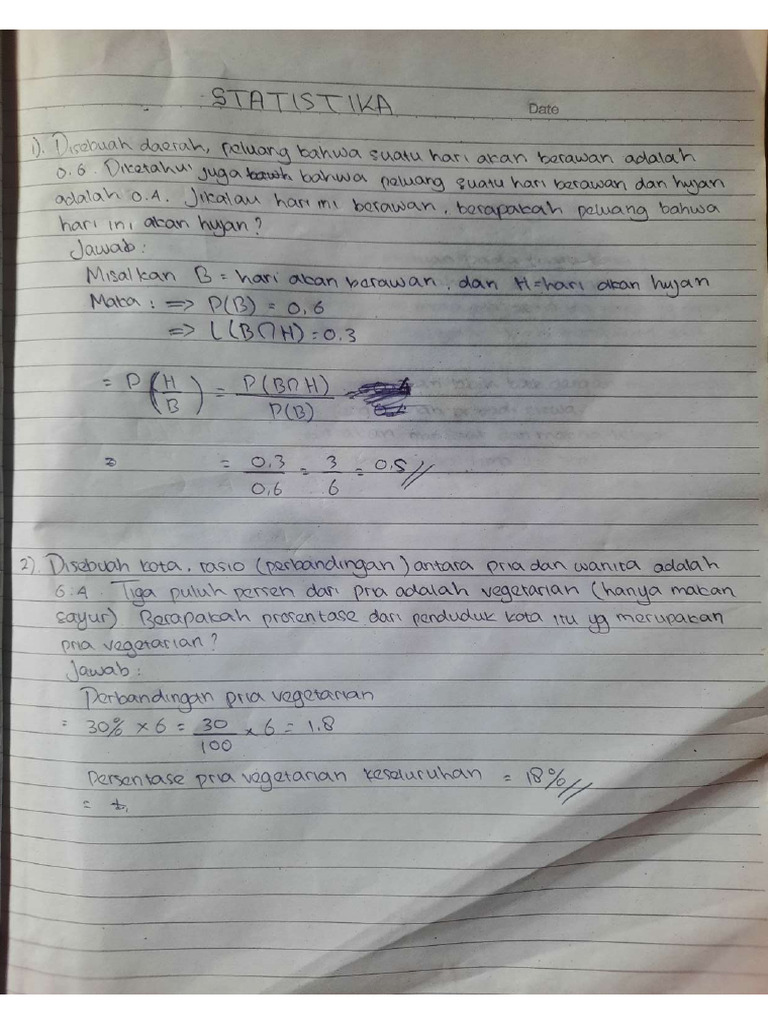 STATISTIKA
Date
1). Disebuah daerah, peluang bahwa suatu hari akan berawan adalah
0.6. Diketahui juga bahwa peluang suatu hari berawan dan hujan
adalah 0.4. Jikalau hari ini berawan, berapakah peluang bahwa
hari ini akan hujan?
Jawab:
Misalkan B = hari akan berawan, dan H = hari akan hujan
Maka: => P(B) = 0,6
=> L(B∩H) = 0.3
= P(H/B) = P(B∩H)/P(B)
= 0.3/0,6 = 3/6 = 0.5//
2). Disebuah kota, rasio (perbandingan) antara pria dan wanita adalah
6.4. Tiga puluh persen dari pria adalah vegetarian (hanya makan
sayur) Berapakah prosentase dari penduduk kota itu yg merupakan
pria vegetarian?
Jawab:
Perbandingan pria vegetarian
= 30% x 6 = 30/100 x 6 = 1.8
Persentase pria vegetarian keseluruhan = 18%//
=